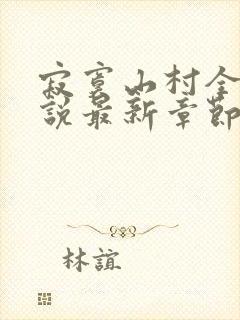 寂寞山村全
說最新章節
林誼